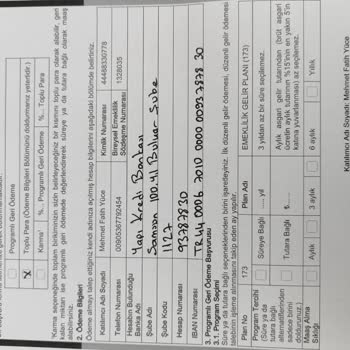 Programlı Geri Ödeme
X Toplu Para (Ödeme Bilgileri Bölümünü doldurmanız yeterlidir.)
Karma* %.. Programlı Geri Ödeme %.. Toplu Para
*Karma seçeneğinde toplam birikiminizin sizin belirleyeceğiniz bir kısmını toplu para olarak alabilir, geri
kalan miktarı ise programlı geri ödemede değerlendirerek süreye ya da tutara bağlı olarak maaş
alabilirsiniz.
2. Ödeme Bilgileri
Ödeme almayı talep ettiğiniz kendi adınıza açılmış hesap bilgilerini aşağıdaki bölümde belirtiniz.
Katılımcı Adı Soyadı Mehmet Fatih Yüce Kimlik Numarası 44488330778
Telefon Numarası 00905367792454 Bireysel Emeklilik Sözleşme Numarası 1328035
Hesabın Bulunduğu Banka Adı Yapı Kredi Bankası
Şube Adı Samsun 100.Yıl Bulvarı Şube
Şube Kodu 1127
Hesap Numarası 93787830
IBAN Numarası
3. Programlı Geri Ödeme Başvurusu
3.1. Program Seçimi
Süreye ya da tutara bağlı seçeneklerinden birini işaretleyiniz. İlk düzenli gelir ödemesi, düzenli gelir ödemesi
talebinin işleme alınmasını takip eden ay yapılır.
Plan No 173 Plan Adı EMEKLİLİK GELİR PLANI (173)
Program Tercihi (Süre ya da tutara bağlı alternatiflerinden sadece birini doldurunuz.)
Süreye Bağlı .... yıl 3 yıldan az bir süre seçilemez.
Tutara Bağlı ₺.... Aylık asgari gelir tutarından (brüt asgari ücretin aylık tutarının %15'inin en yakın 5'in katına yuvarlanması) az seçilemez.
Maaş Alma Sıklığı Aylık 3 aylık 6 aylık Yıllık
Katılımcı Adı Soyadı: Mehmet Fatih Yüce